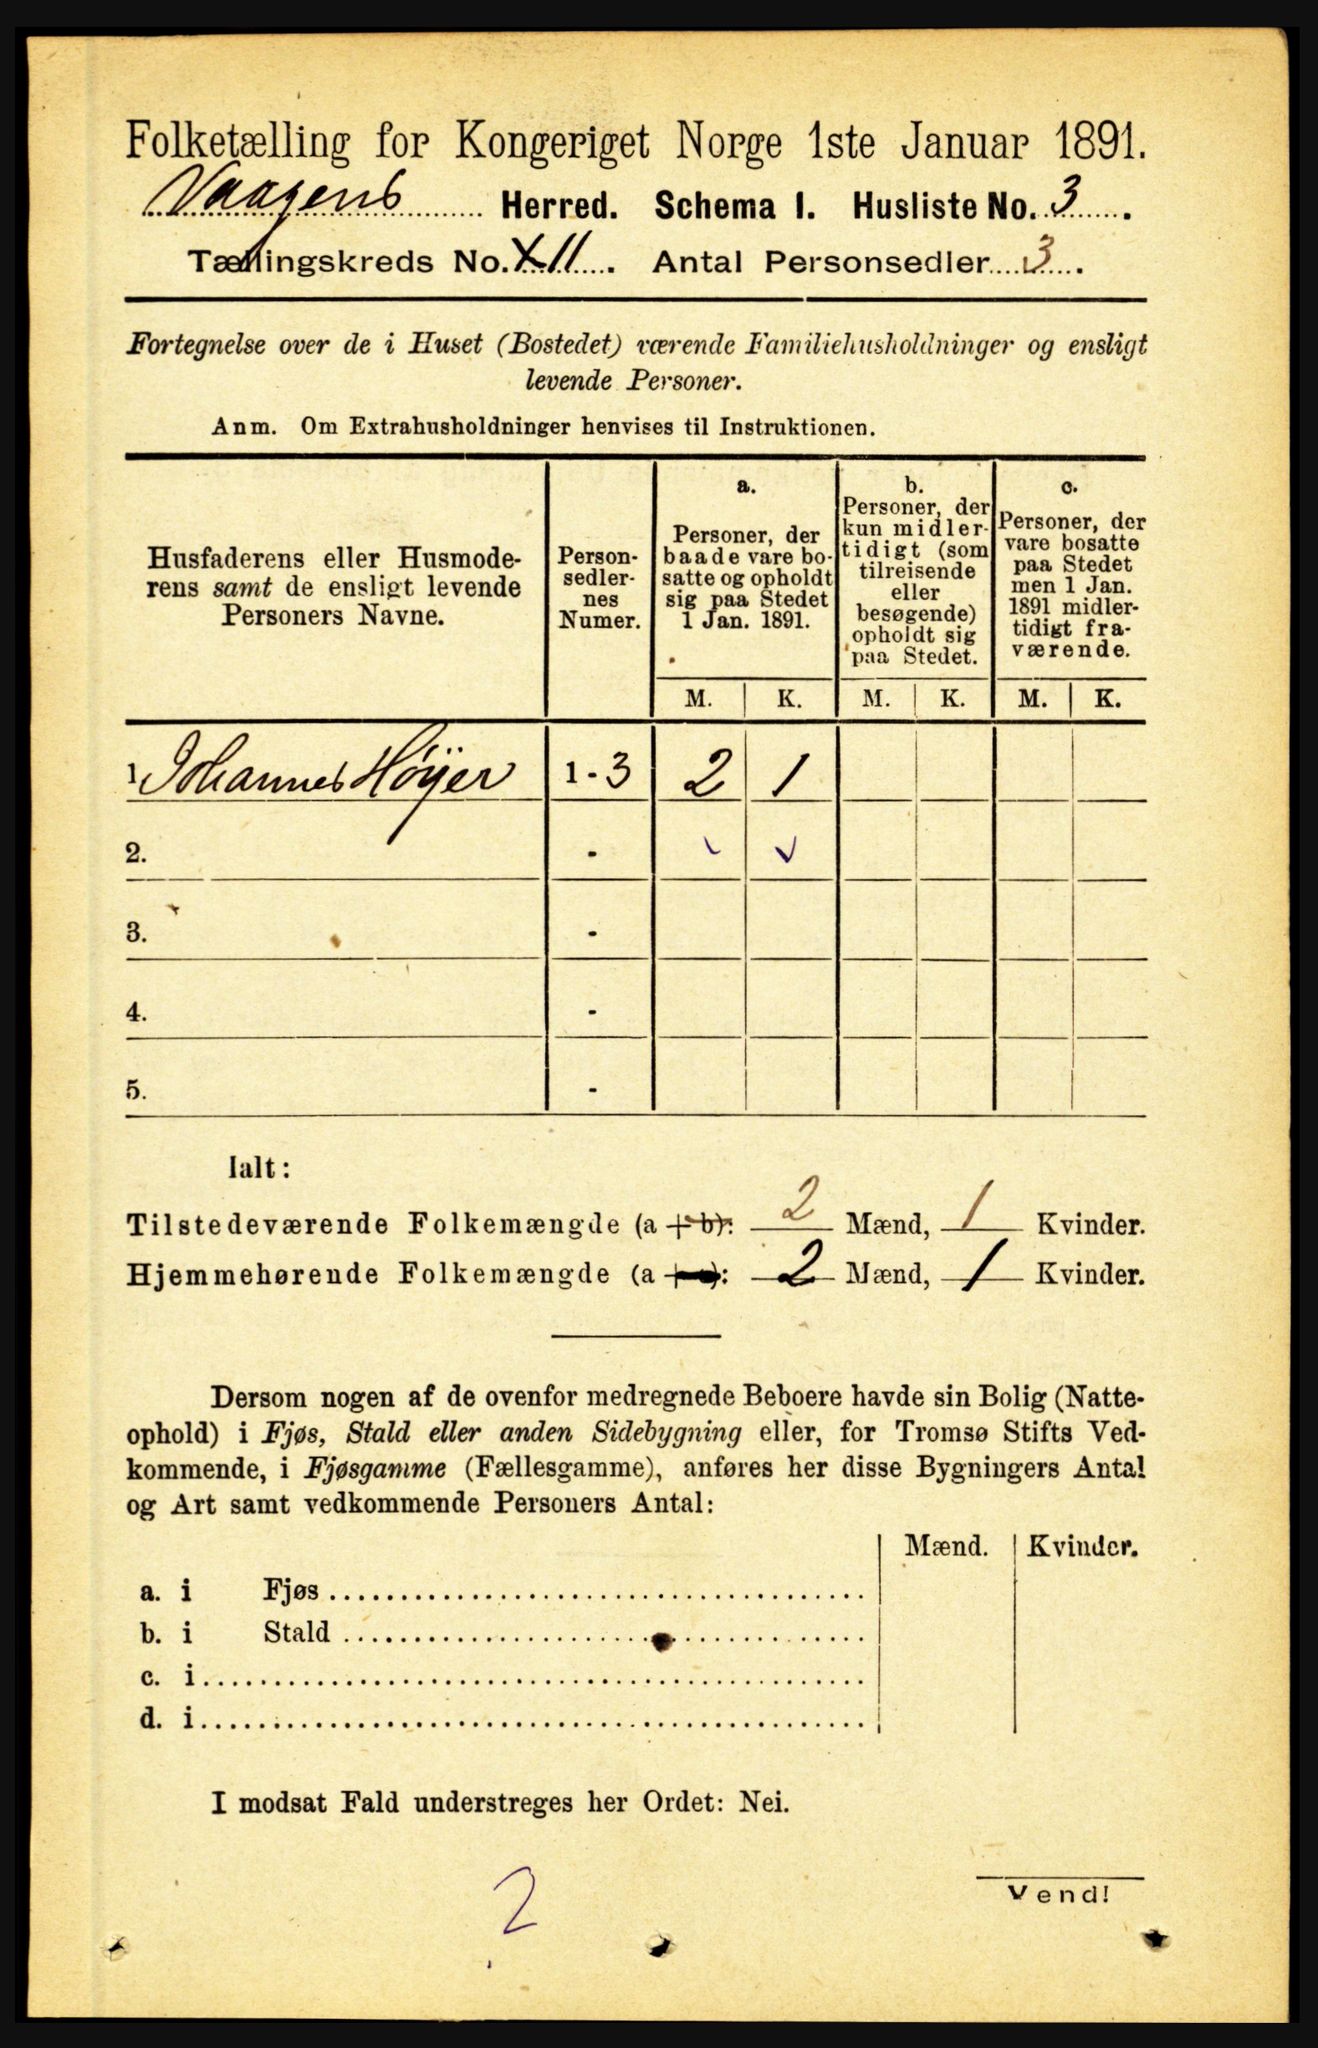 Folketælling for Kongeriget Norge 1ste Januar 1891.
Vaagens Herred. Schema I. Husliste No. 3.
Tællingskreds No. XII. Antal Personsedler 3.
Fortegnelse over de i Huset (Bostedet) værende Familiehusholdninger og ensligt
levende Personer.
Anm. Om Extrahusholdninger henvises til Instruktionen.
Husfaderens eller Husmode-
rens samt de ensligt levende
Personers Navne.
Person-
sedler-
nes
Numer.
a.
Personer, der
baade vare bo-
satte og opholdt
sig paa Stedet
1 Jan. 1891.
b.
Personer, der
kun midler-
tidigt (som
tilreisende
eller
besøgende)
opholdt sig
paa Stedet.
c.
Personer, der
vare bosatte
paa Stedet
men 1 Jan.
1891 midler-
tidigt fra-
værende.
M. K. M. K. M. K.
1 Johannes Høyer 1 - 3 2 1
2. -
3. -
4. -
5. -
Ialt:
Tilstedeværende Folkemængde (a + b): 2 Mænd, 1 Kvinder.
Hjemmehørende Folkemængde (a + c): 2 Mænd, 1 Kvinder.
Dersom nogen af de ovenfor medregnede Beboere havde sin Bolig (Natte-
ophold) i Fjøs, Stald eller anden Sidebygning eller, for Tromsø Stifts Ved-
kommende, i Fjøsgamme (Fællesgamme), anføres her disse Bygningers Antal
og Art samt vedkommende Personers Antal:
Mænd. Kvinder.
a. i Fjøs
b. i Stald
c. i
d. i
I modsat Fald understreges her Ordet: Nei.
2
Vend!